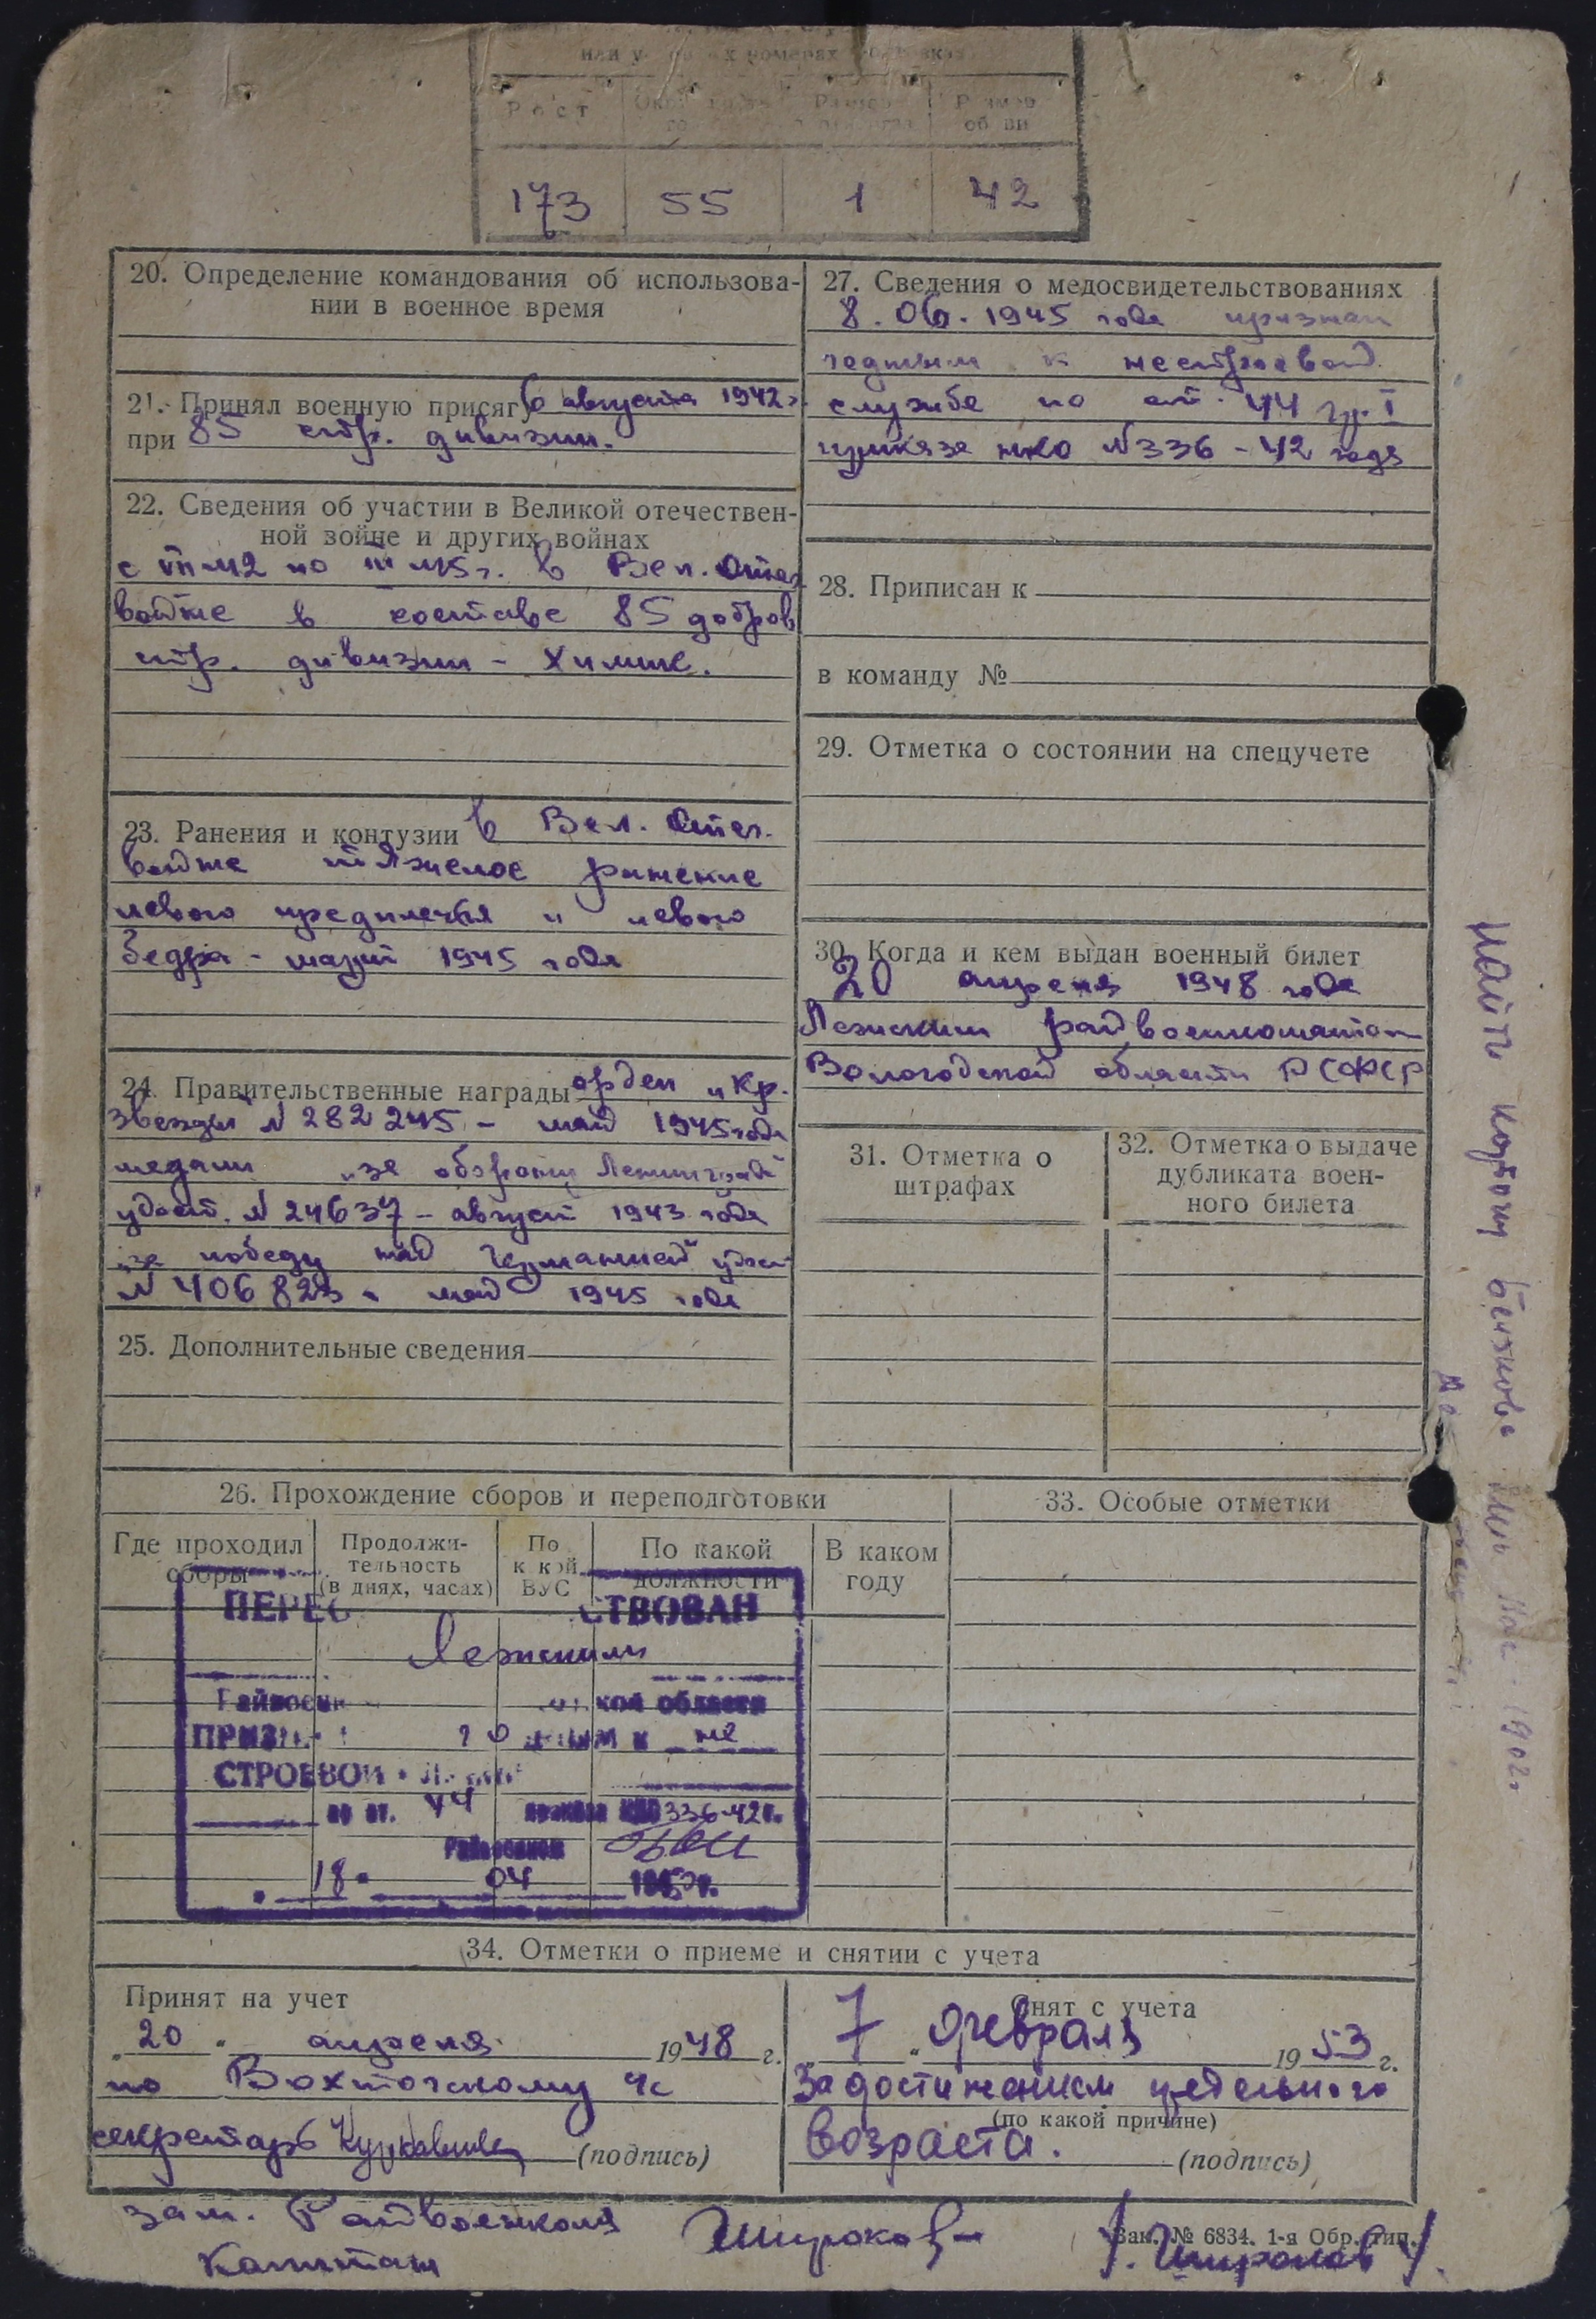 или у
номерах
Рост
173 55 1 42
20. Определение командования об использова-
нии в военное время
21. Принял военную присягу 6 августа 1942 г.
при 85 стр. дивизии.
22. Сведения об участии в Великой отечествен-
ной войне и других войнах
с VII-42 по III-45 г. в Вел. Отеч.
войне в составе 85 добров
стр. дивизии - химик.
23. Ранения и контузии в Вел. Отеч.
войне тяжелое ранение
левого предплечья и левого
бедра - март 1945 года
24. Правительственные награды орден „Кр.
Звезды N 282245 - май 1945 года
медали „за оборону Ленинграда"
удост. N 24637 - август 1943 года
„за победу над Германией" удост
N 406823 - май 1945 года
25. Дополнительные сведения
27. Сведения о медосвидетельствованиях
8.06.1945 года признан
годным к нестроевой
службе по ст. 44 гр. I
приказа НКО N336-42 года
28. Приписан к
в команду №
29. Отметка о состоянии на спецучете
30. Когда и кем выдан военный билет
20 апреля 1948 года
Лежским райвоенкоматом
Вологодской области РСФСР
31. Отметка о
штрафах
32. Отметка о выдаче
дубликата воен-
ного билета
26. Прохождение сборов и переподготовки
Где проходил
сборы
Продолжи-
тельность
(в днях, часах)
По
к кой
ВУС
По какой
должности
В каком
году
ПЕРЕ СТВОВАН
Лежским
кой области
не
СТРОЕВОЙ
по ст. 44 приказа НКО 336-42 г.
Райвоенком
18 04
33. Особые отметки
34. Отметки о приеме и снятии с учета
Принят на учет
„20" апреля 1948 г.
по Вохтожскому
секретарь (подпись)
Снят с учета
7 „февраля 1953 г.
За достижением предельного
(по какой причине)
возраста.
(подпись)
зам. Райвоенкома
Капитан Широков /. Широков /.
Зак. № 6834. 1-я Обр. тип.
Найти карточку
1902 г.